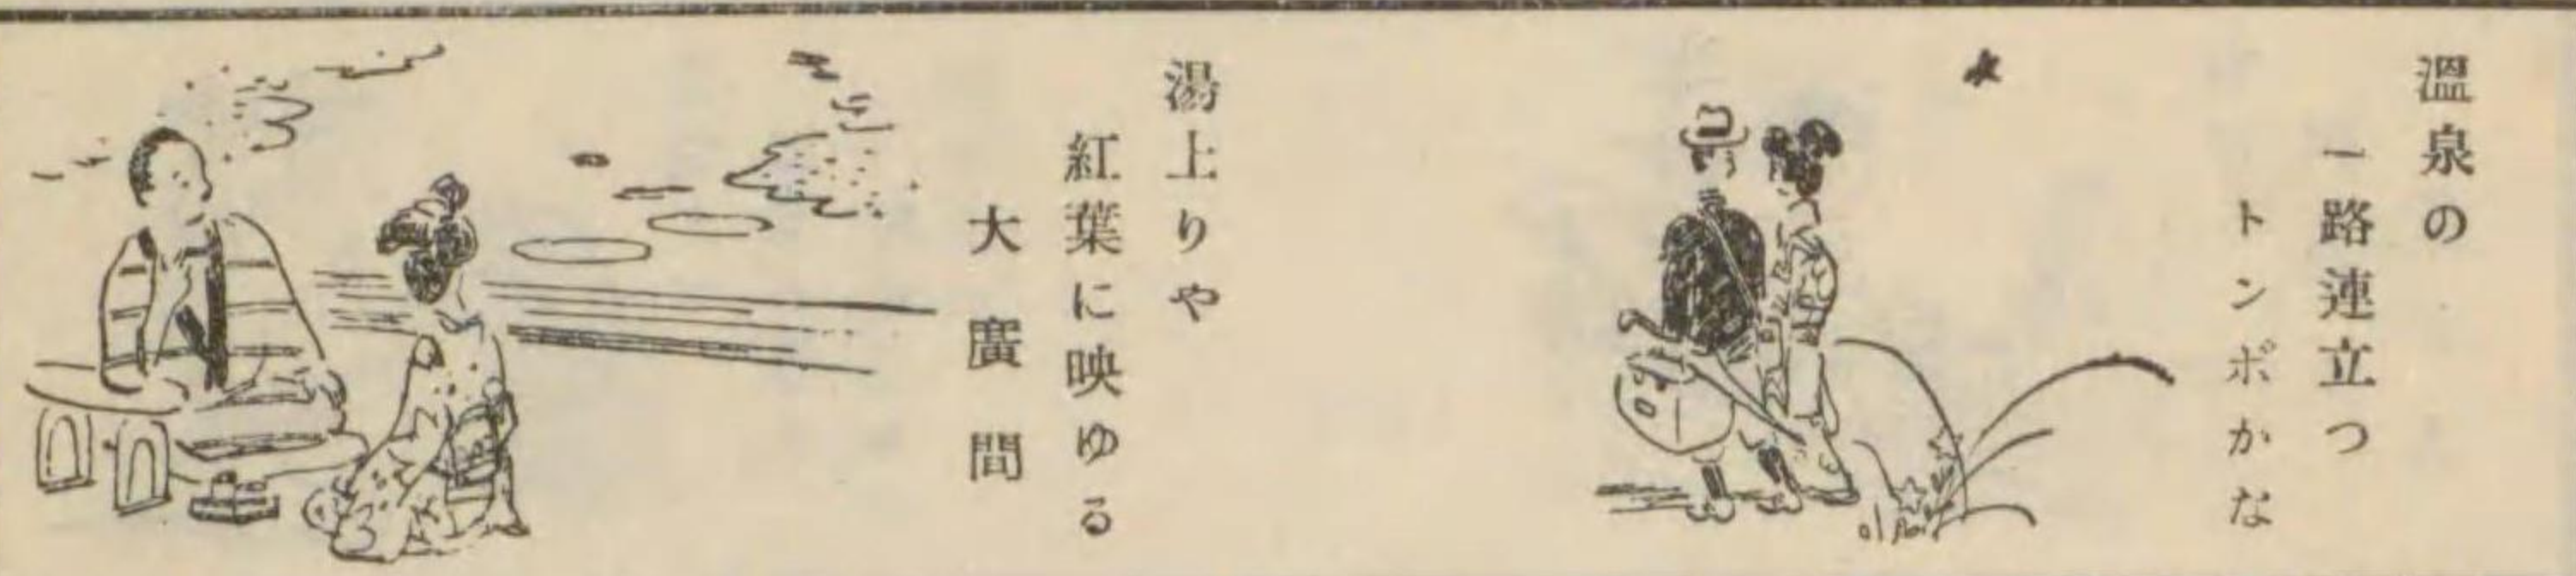 溫泉の
一路連立つ
トンボかな
湯上りや
紅葉に映ゆる
大廣間